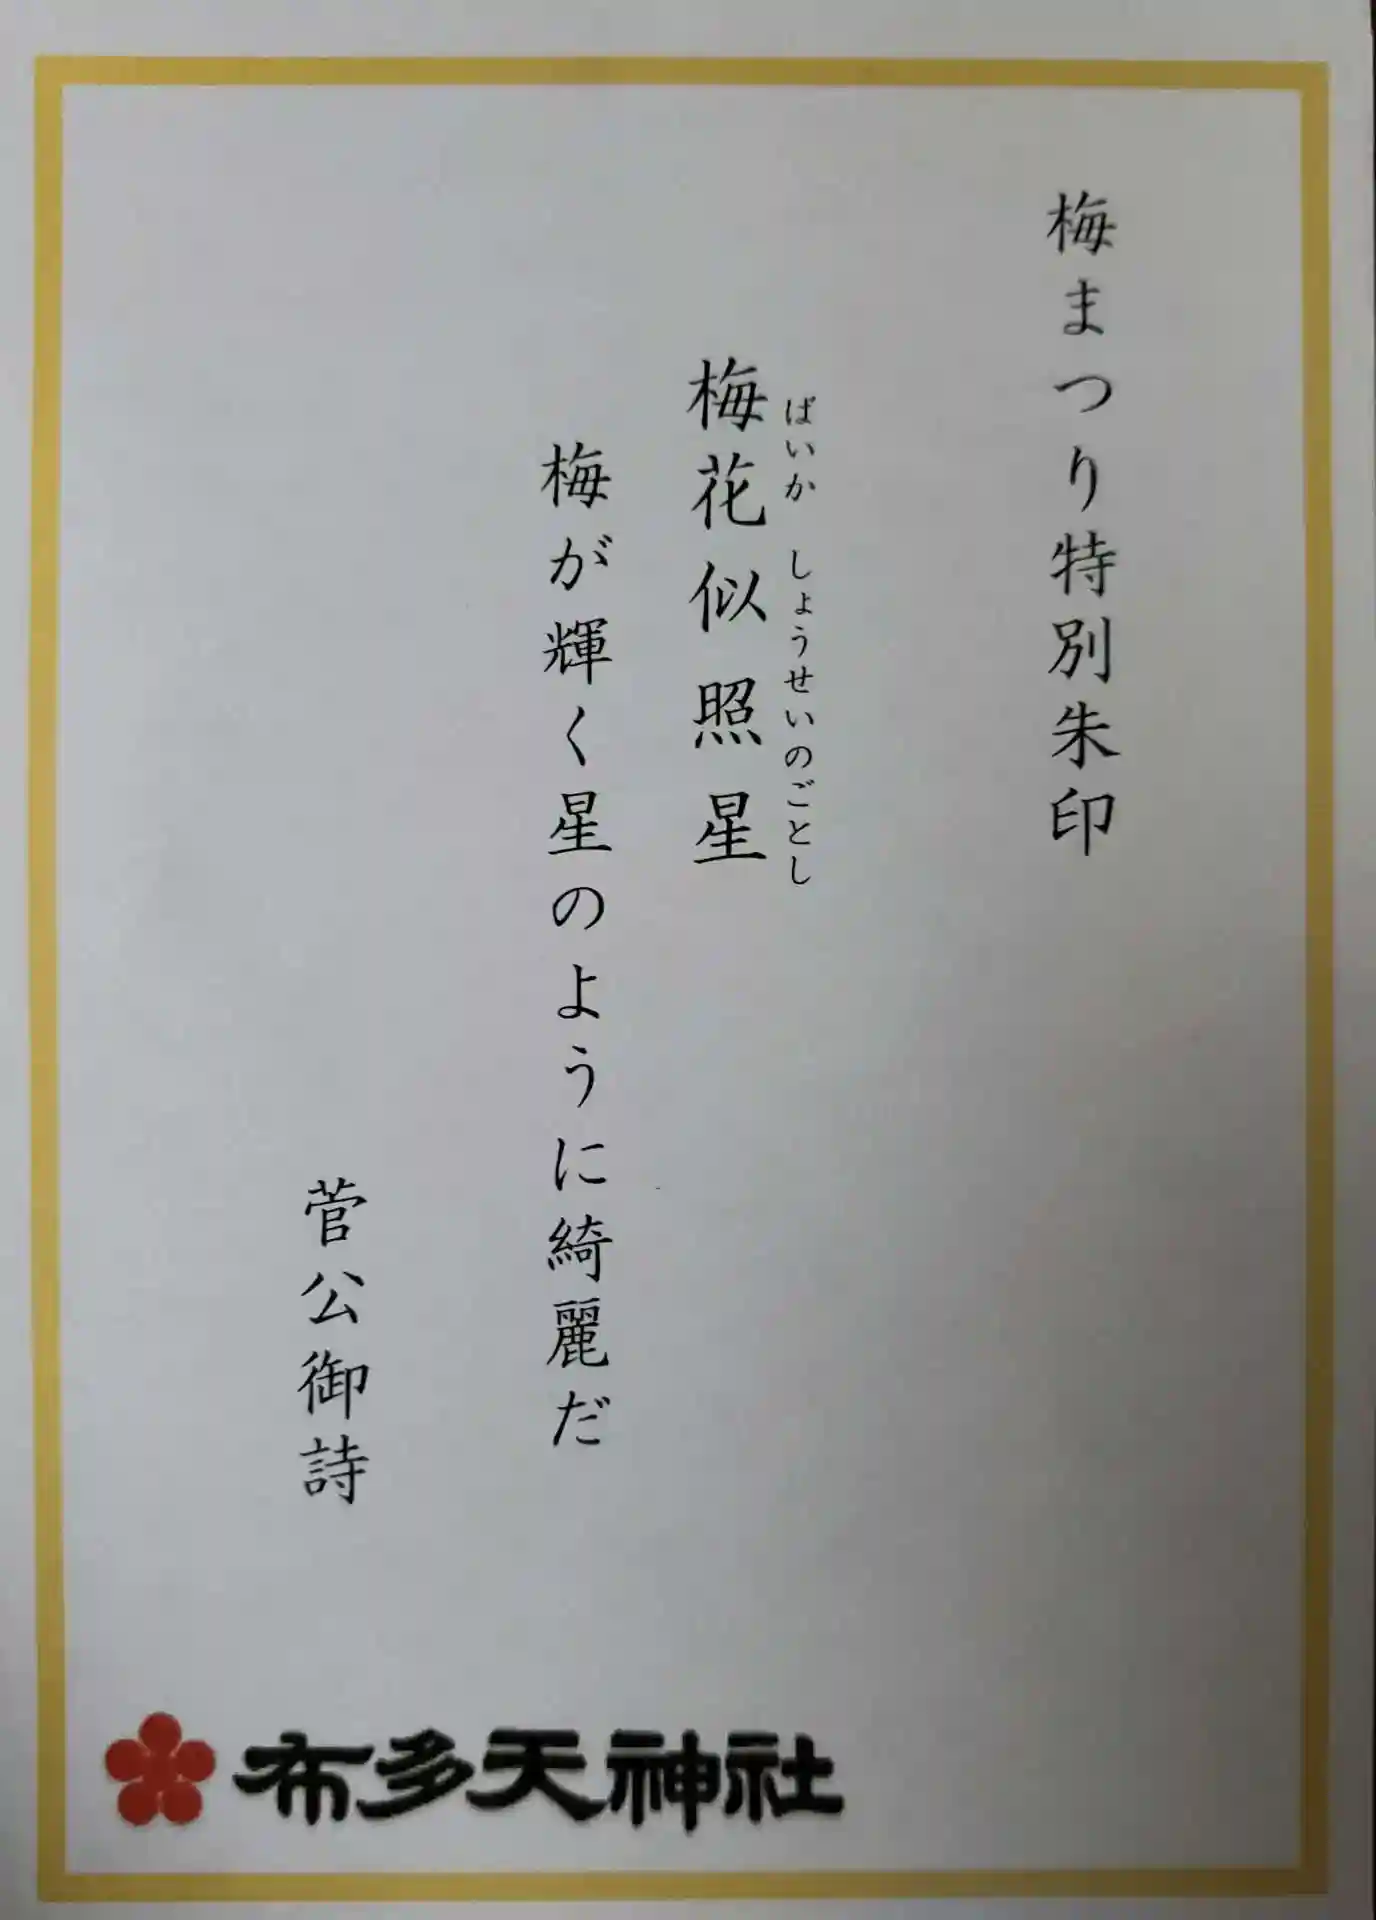 梅まつり特別朱印
ばいか しょうせいのごとし
梅花似照星
梅が輝く星のように綺麗だ
菅公御詩
布多天神社